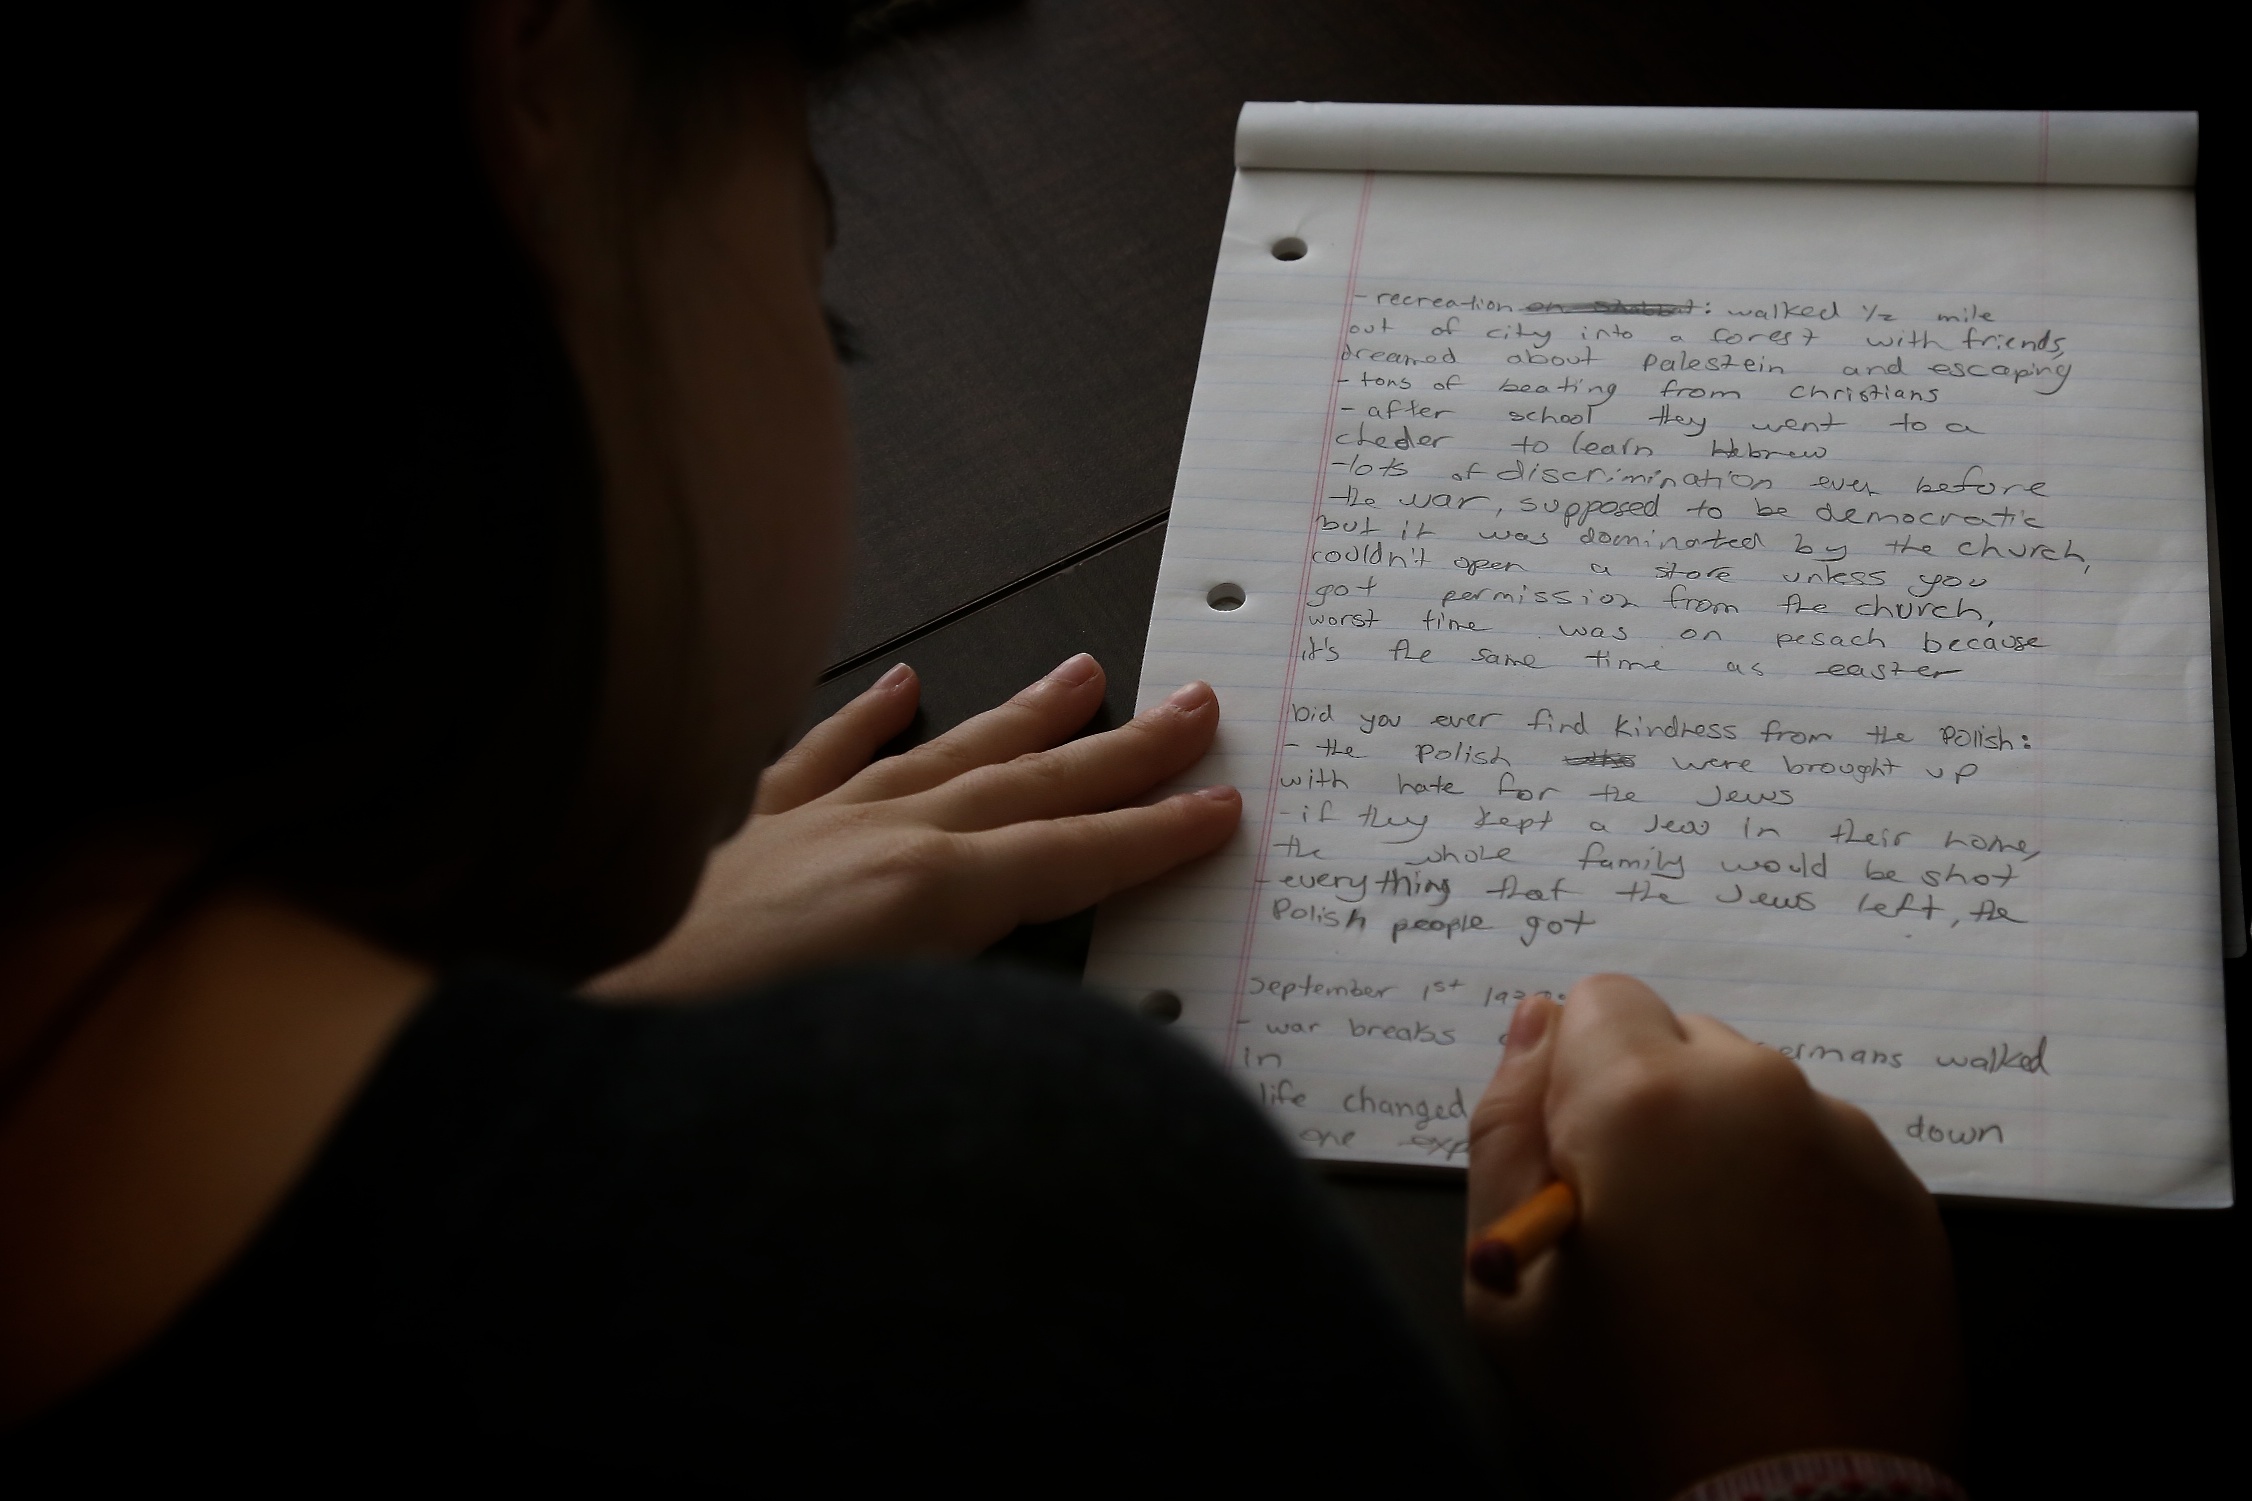 - recreation : walked 1/2 mile
out of city into a forest with friends,
dreamed about palestein and escaping
- tons of beating from christians
- after school they went to a
cheder to learn Hebrew
- lots of discrimination even before
the war, supposed to be democratic
but it was dominated by the church,
couldn't open a store unless you
got permission from the church,
worst time was on pesach because
it's the same time as easter
Did you ever find kindness from the Polish:
- the Polish were brought up
with hate for the Jews
- if they kept a Jew in their home,
the whole family would be shot
- everything that the Jews left, the
Polish people got
September 1st
- war breaks walked
in
life changed down
one